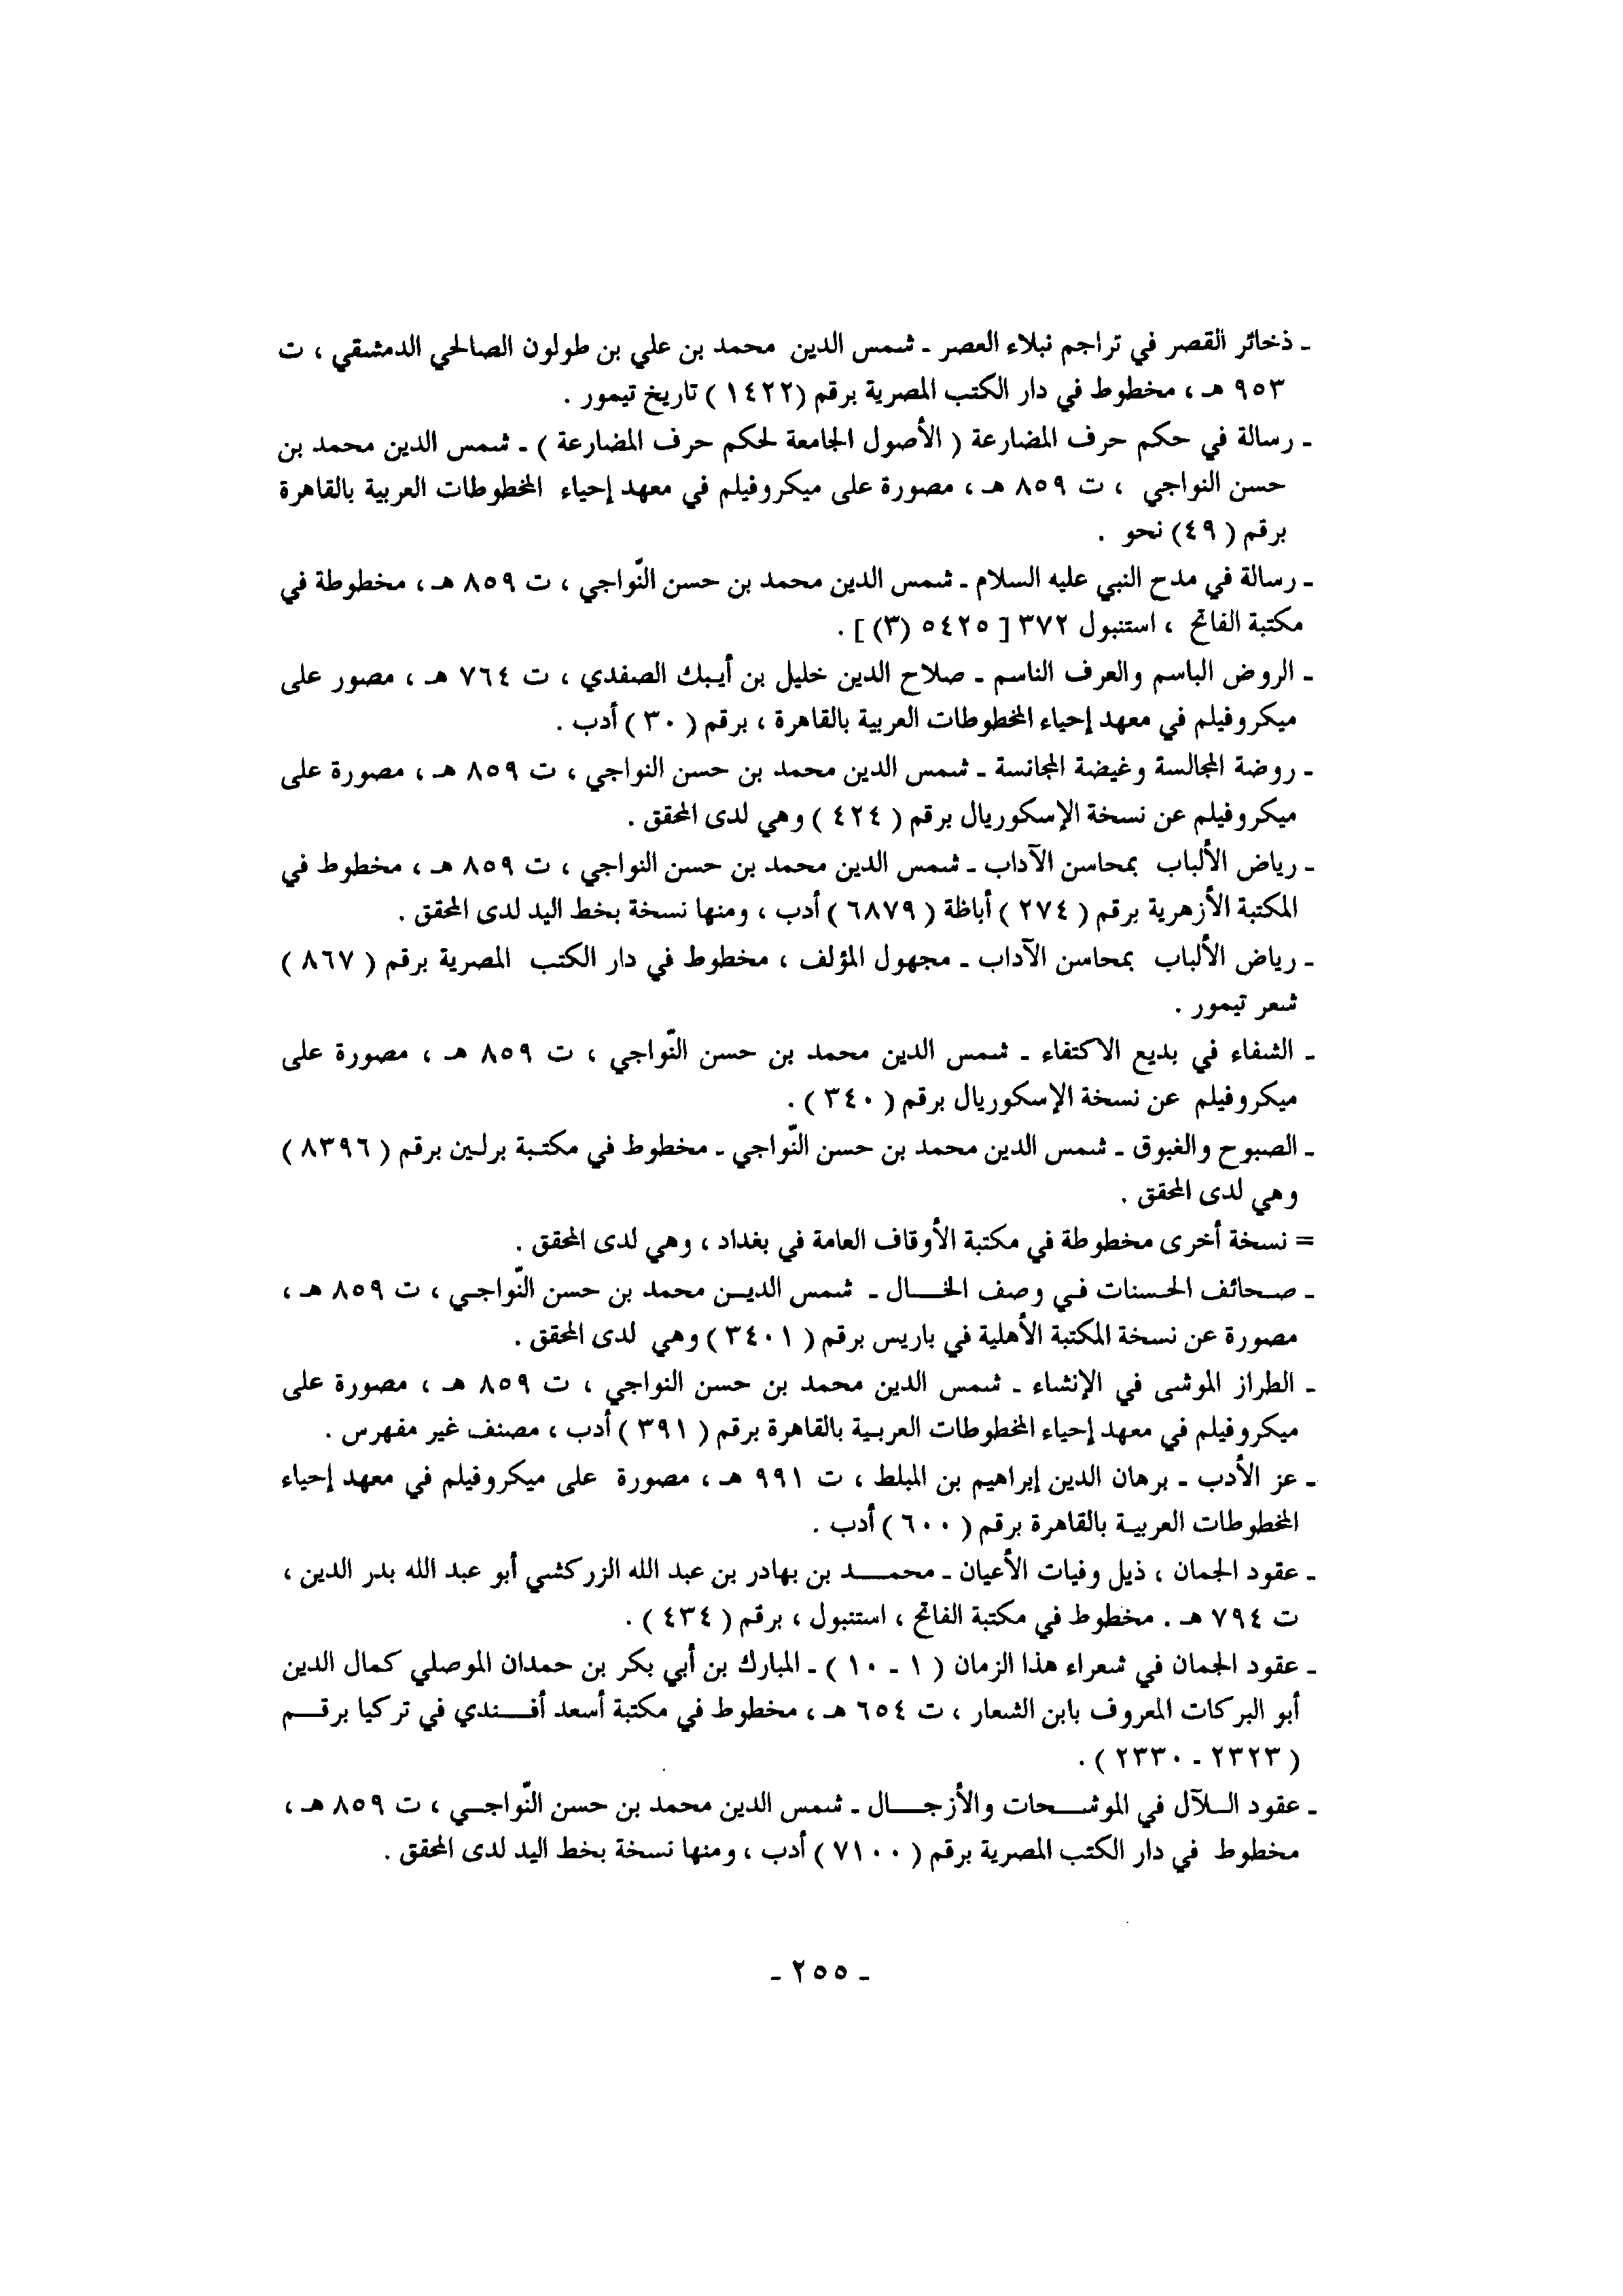 ـ ذخائر القصر في تراجم نبلاء العصر ـ شمس الدين محمد بن علي بن طولون الصالحي الدمشقي ، ت
٩٥٣ هـ ، مخطوط في دار الكتب المصرية برقم (١٤٢٢ ) تاريخ تيمور .
ـ رسالة في حكم حرف المضارعة ( الأصول الجامعة لحكم حرف المضارعة ) ـ شمس الدين محمد بن
حسن النواجي ، ت ٨٥٩ هـ ، مصورة على ميكروفيلم في معهد إحياء المخطوطات العربية بالقاهرة
برقم ( ٤٩) نحو .
ـ رسالة في مدح النبي عليه السلام ـ شمس الدين محمد بن حسن النّواجي ، ت ٨٥٩ هـ ، مخطوطة في
مكتبة الفاتح ، استنبول ٣٧٢ [ ٥٤٢٥ (٣) ] .
ـ الروض الباسم والعرف الناسم ـ صلاح الدين خليل بن أيبك الصفدي ، ت ٧٦٤ هـ ، مصور على
ميكروفيلم في معهد إحياء المخطوطات العربية بالقاهرة ، برقم ( ٣٠ ) أدب .
ـ روضة المجالسة وغيضة المجانسة ـ شمس الدين محمد بن حسن النواجي ، ت ٨٥٩ هـ ، مصورة على
ميكروفيلم عن نسخة الإسكوريال برقم ( ٤٢٤ ) وهي لدى المحقق .
ـ رياض الألباب بمحاسن الآداب ـ شمس الدين محمد بن حسن النواجي ، ت ٨٥٩ هـ ، مخطوط في
المكتبة الأزهرية برقم ( ٢٧٤ ) أباظة ( ٦٨٧٩ ) أدب ، ومنها نسخة بخط اليد لدى المحقق .
ـ رياض الألباب بمحاسن الآداب ـ مجهول المؤلف ، مخطوط في دار الكتب المصرية برقم ( ٨٦٧ )
شعر تيمور .
ـ الشفاء في بديع الاكتفاء ـ شمس الدين محمد بن حسن النّواجي ، ت ٨٥٩ هـ ، مصورة على
ميكروفيلم عن نسخة الإسكوريال برقم ( ٣٤٠ ) .
ـ الصبوح والغبوق ـ شمس الدين محمد بن حسن النّواجي ـ مخطوط في مكتبة برلين برقم ( ٨٣٩٦ )
وهي لدى المحقق .
= نسخة أخرى مخطوطة في مكتبة الأوقاف العامة في بغداد ، وهي لدى المحقق .
ـ صحائف الحسنات في وصف الخال ـ شمس الدين محمد بن حسن النّواجي ، ت ٨٥٩ هـ ،
مصورة عن نسخة المكتبة الأهلية في باريس برقم ( ٣٤٠١ ) وهي لدى المحقق .
ـ الطراز الموشى في الإنشاء ـ شمس الدين محمد بن حسن النواجي ، ت ٨٥٩ هـ ، مصورة على
ميكروفيلم في معهد إحياء المخطوطات العربية بالقاهرة برقم ( ٣٩١ ) أدب ، مصنف غير مفهرس .
ـ عز الأدب ـ برهان الدين إبراهيم بن المبلط ، ت ٩٩١ هـ ، مصورة على ميكروفيلم في معهد إحياء
المخطوطات العربية بالقاهرة برقم ( ٦٠٠ ) أدب .
ـ عقود الجمان ، ذيل وفيات الأعيان ـ محمد بن بهادر بن عبد الله الزركشي أبو عبد الله بدر الدين ،
ت ٧٩٤ هـ . مخطوط في مكتبة الفاتح ، استنبول ، برقم ( ٤٣٤ ) .
ـ عقود الجمان في شعراء هذا الزمان ( ١ ـ ١٠ ) ـ المبارك بن أبي بكر بن حمدان الموصلي كمال الدين
أبو البركات المعروف بابن الشعار ، ت ٦٥٤ هـ ، مخطوط في مكتبة أسعد أفندي في تركيا برقم
( ٢٣٢٣ ـ ٢٣٣٠ ) .
ـ عقود اللآل في الموشحات والأزجال ـ شمس الدين محمد بن حسن النّواجي ، ت ٨٥٩ هـ ،
مخطوط في دار الكتب المصرية برقم ( ٧١٠٠ ) أدب ، ومنها نسخة بخط اليد لدى المحقق .
ـ ٢٥٥ ـ